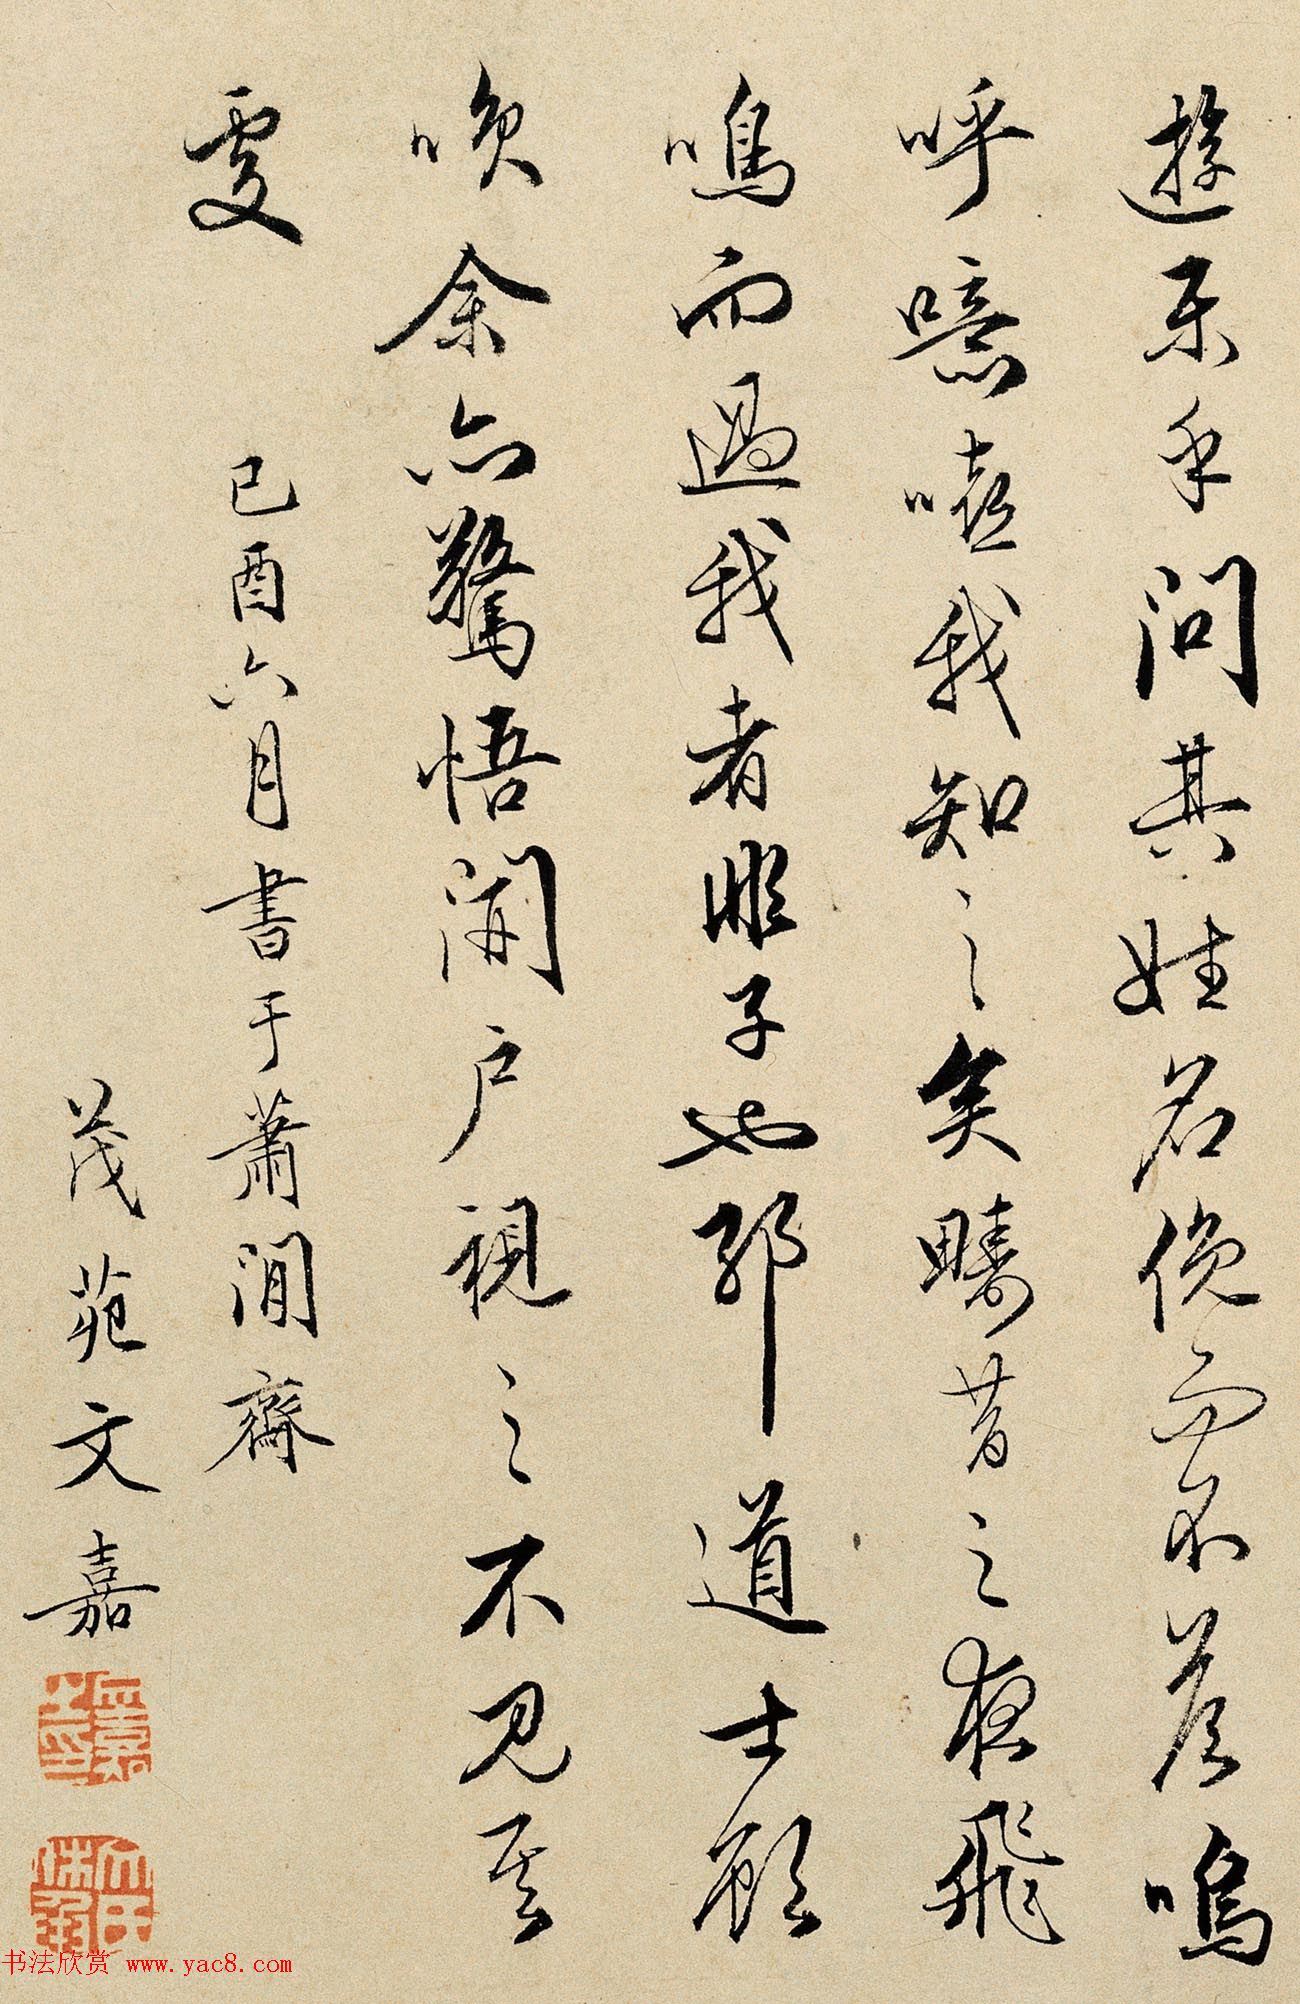 遊樂乎問其姓名俛而不答嗚
呼噫嘻我知之矣疇昔之夜飛
鳴而過我者非子也耶道士顧
唉余亦驚悟開户視之不見其
處
己酉六月書于蕭閒齋
茂苑文嘉
书法欣赏 www.yac8.com